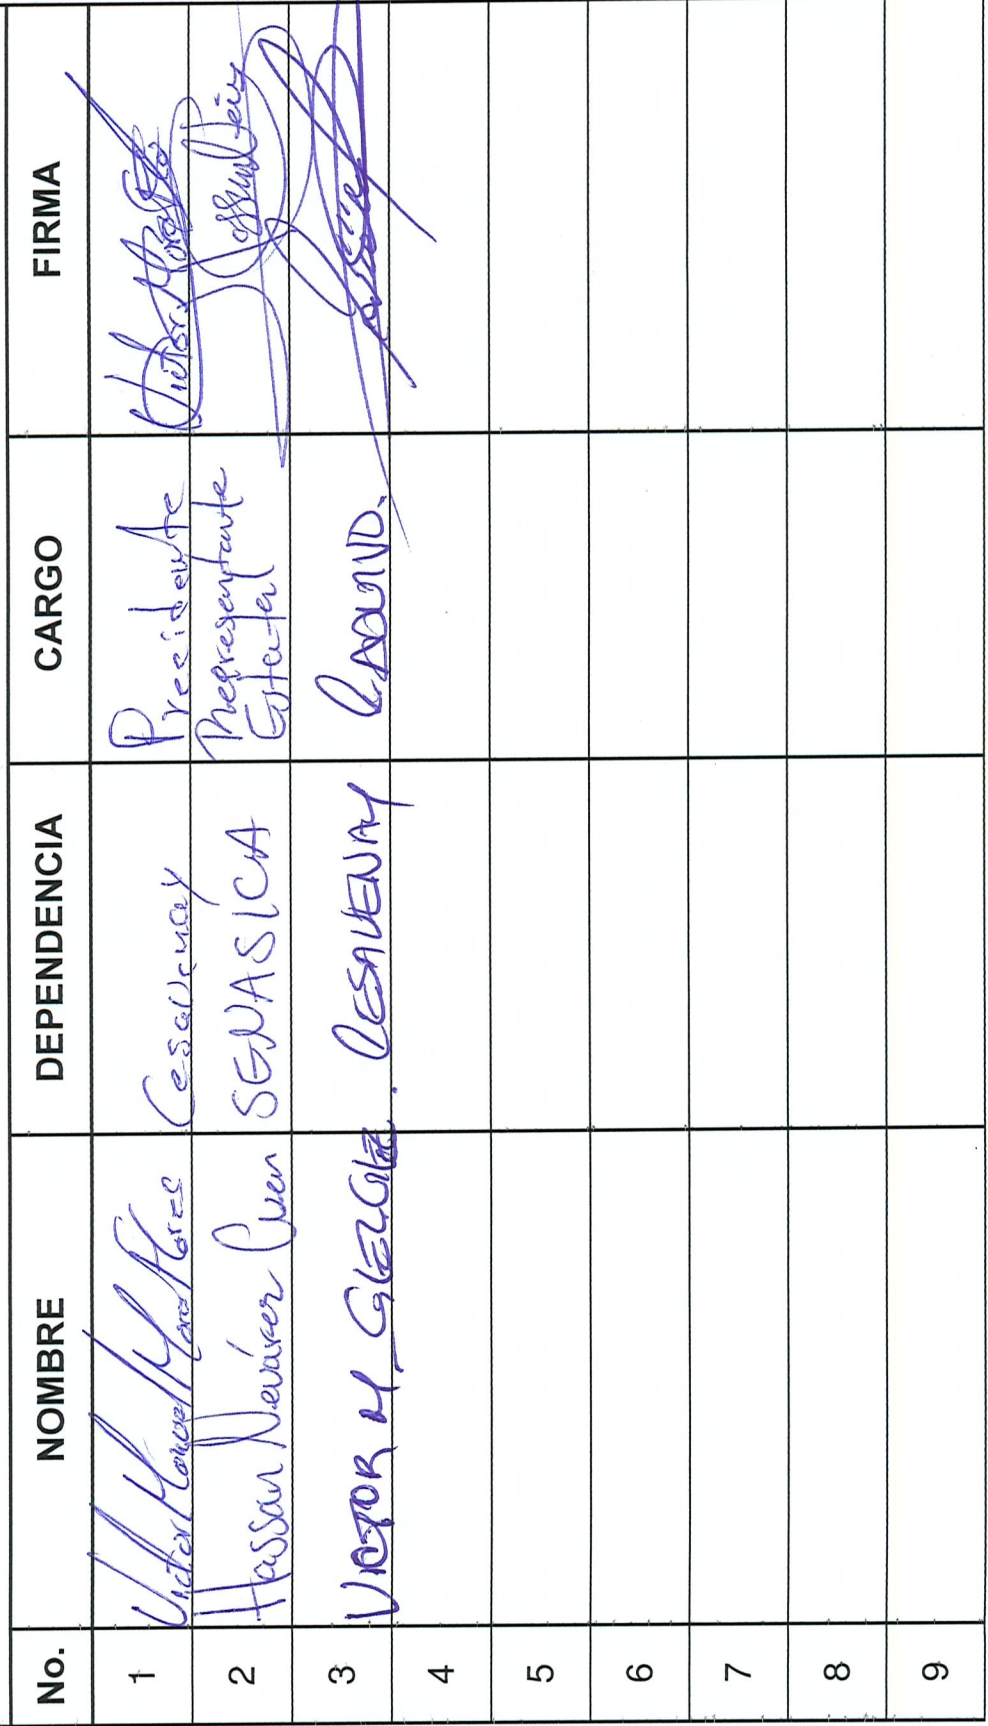 No. NOMBRE DEPENDENCIA CARGO FIRMA
1 Victor Manuel Mora Flores Cesavenay Precidente Victor Mora Flo
2 Hassan Nevárez SENASICA Representante
Estatal
3 VICTOR M. GLEZ GLEZ. CESAVENAY
4
5
6
7
8
9